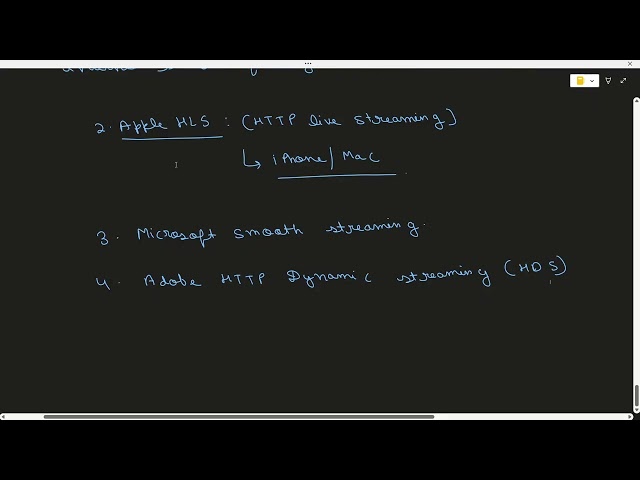 2. Apple HLS : (HTTP live streaming)
↳ iPhone/Mac
3. Microsoft smooth streaming.
4. Adobe HTTP Dynamic streaming (HDS)